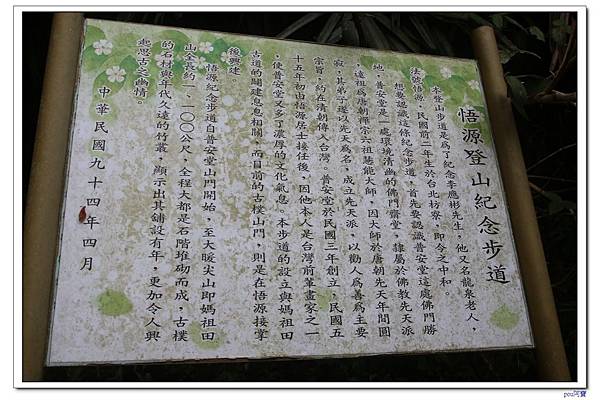 悟源登山紀念步道
本登山步道是為了紀念李應彬先生，他又名龍泉老人，
法號悟源，民國前二年生於台北枋寮，即今之中和。
想要認識這條紀念步道，首先要認識普安堂這處佛門勝
地，普安堂是一處環境清幽的佛門齋堂，隸屬於佛教先天派
，遠祖為唐朝禪宗六祖慧能大師，因大師於唐朝先天年間圓
寂，其弟子遂以先天為名，成立先天派，以勸人為善為主要
宗旨，約在清朝傳入台灣。普安堂於民國三年創立，民國五
十五年初由悟源居士接任後，因他本人是台灣前輩畫家之一
，使普安堂又多了濃厚的文化氣息。本步道的設立與媽祖田
古道的關建息息相關，而目前的古樸山門，則是在悟源接掌
後興建。
悟源紀念步道自普安堂山門開始，至大暖尖山即媽祖田
山全長約一、一〇〇公尺，全程大都是石階堆砌而成，古樸
的石材與年代久遠的竹叢，顯示出其舖設有年，更加令人興
起思古之幽情。
中華民國九十四年四月
pcu阿寶